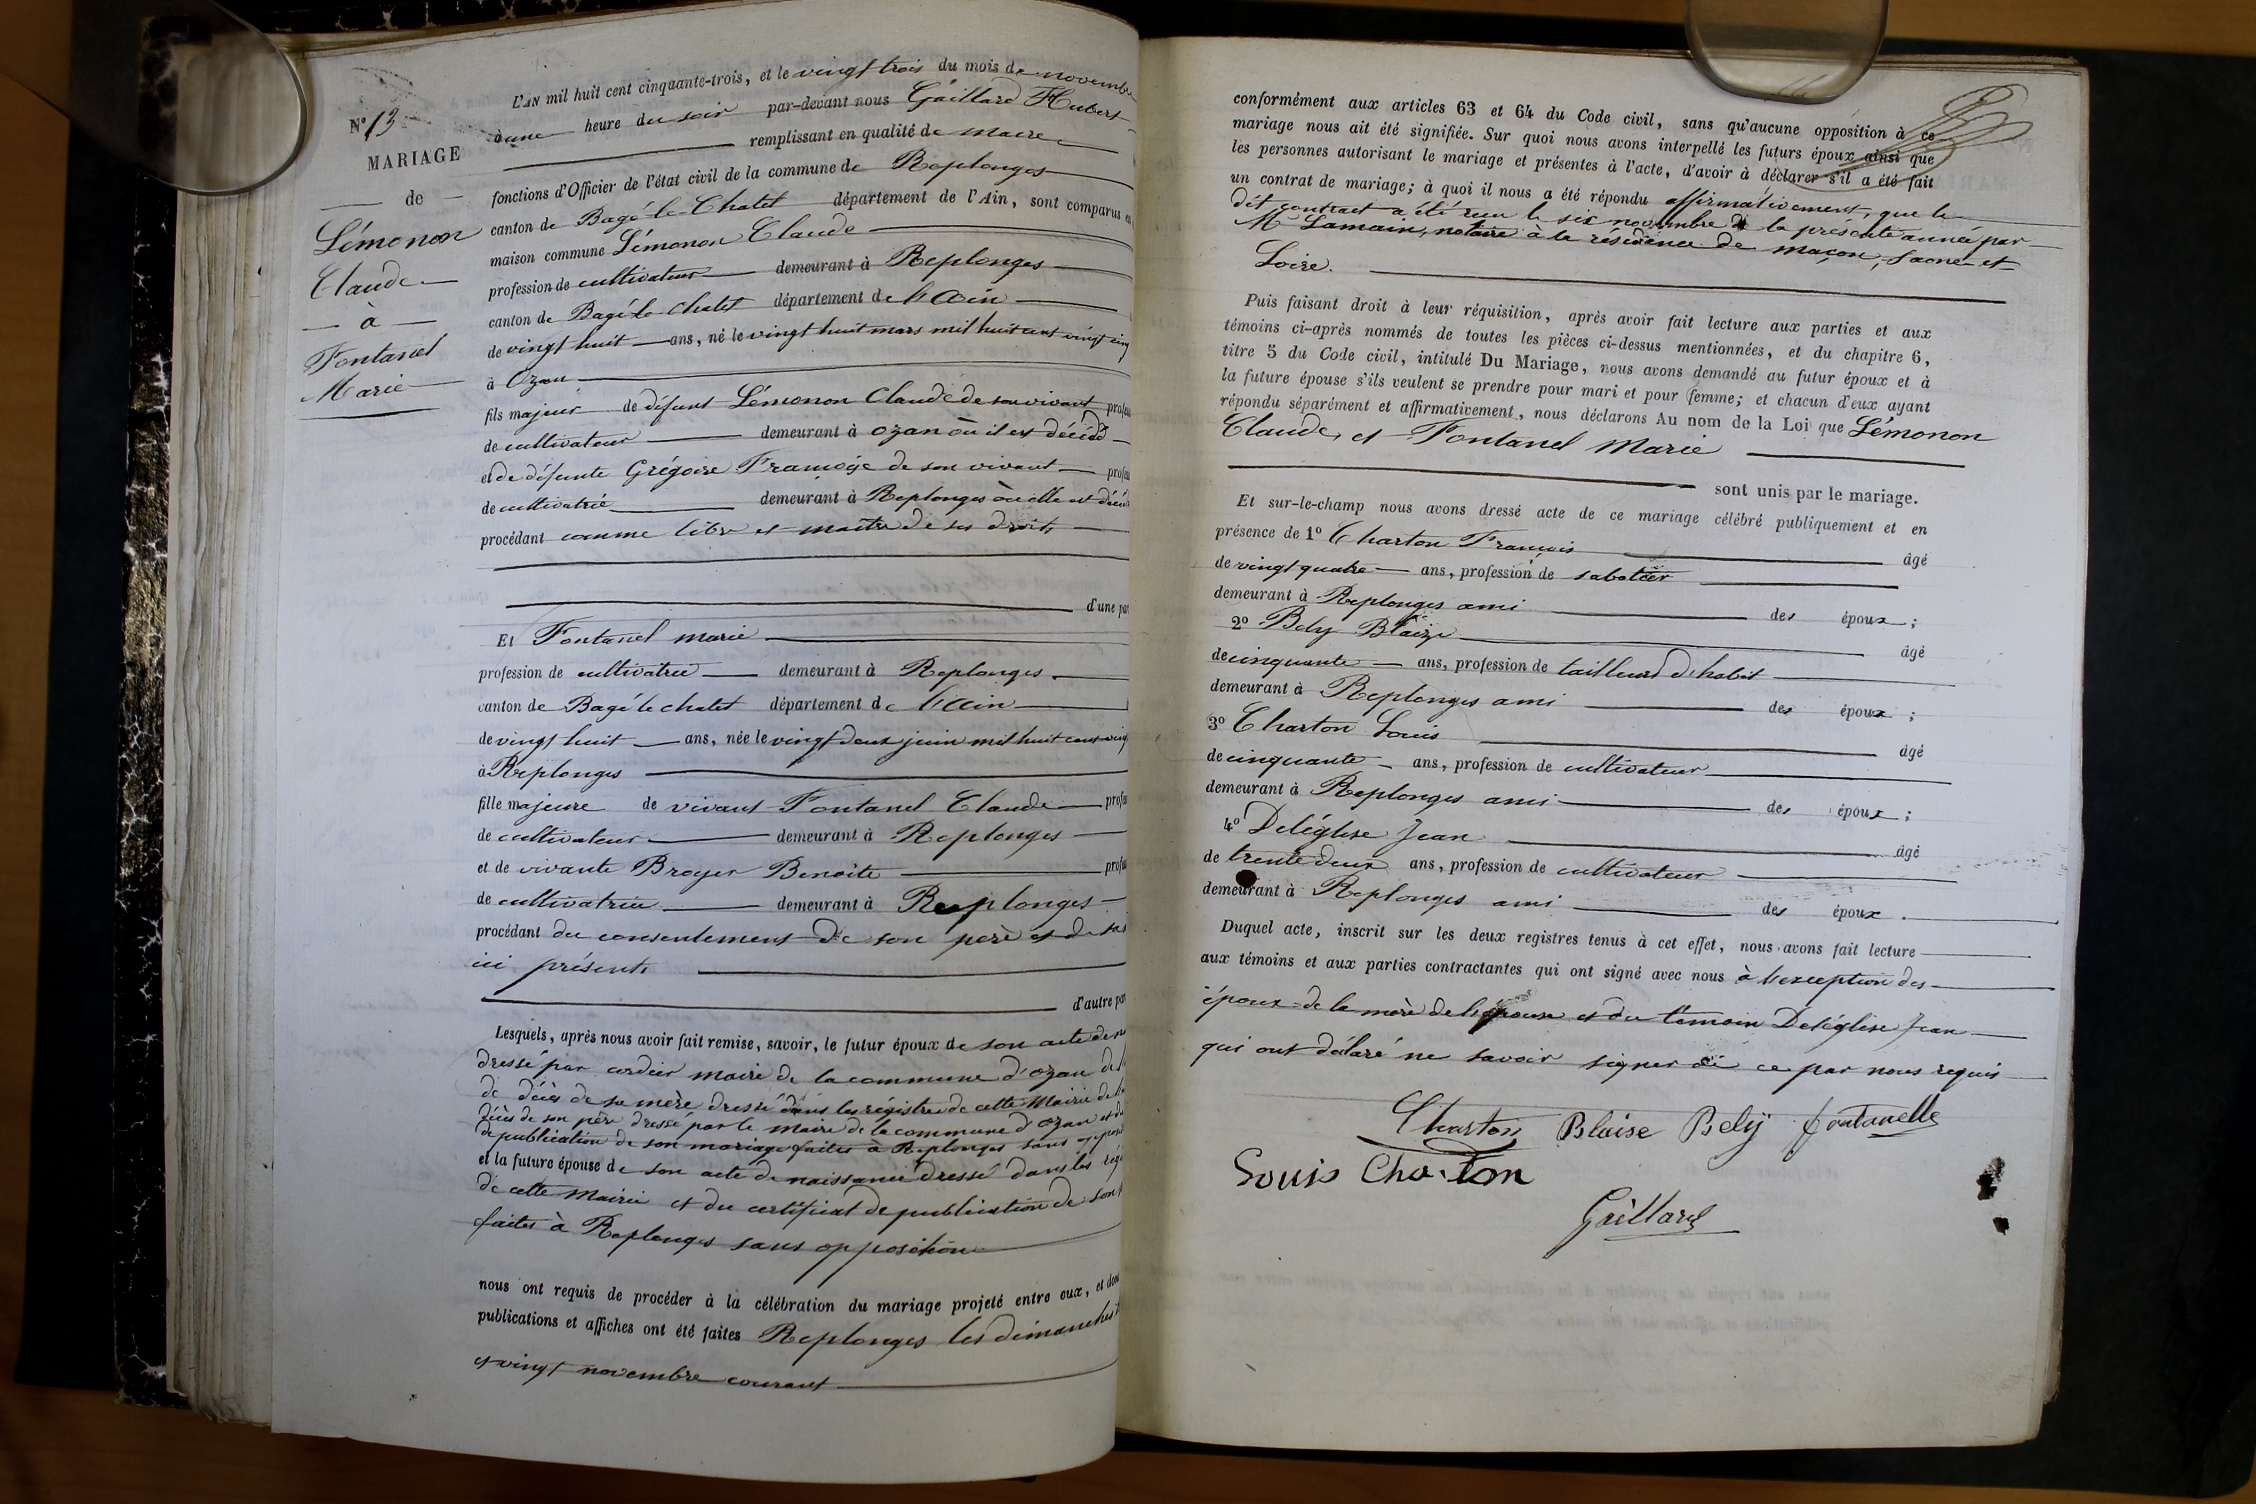 N° 13
MARIAGE
de
Lémonon
Claude
à
Fontanel
Marie
L'AN mil huit cent cinquante-trois, et le vingt trois du mois de novembre
à une heure du soir par-devant nous Gaillard Hubert
remplissant en qualité de maire
fonctions d'Officier de l'état civil de la commune de Replonges
canton de Bagé-le-Chatel département de l'Ain, sont comparus en
maison commune Lémonon Claude
profession de cultivateur demeurant à Replonges
canton de Bagé-le-Chatel département de l'Ain
de vingt huit ans, né le vingt huit mars mil huit cent vingt cinq
à Ozan
fils majeur de défunt Lémonon Claude de son vivant
de cultivateur demeurant à Ozan où il est décédé
et de défunte Grégoire Françoise de son vivant
de cultivatrice demeurant à Replonges où elle est
procédant comme libre et maitre de ses droits
d'une
Et Fontanel marie
profession de cultivatrice demeurant à Replonges
canton de Bagé le chatel département de l'Ain
de vingt huit ans, née le vingt deux juin mil huit cent
à Replonges
fille majeure de vivant Fontanel Claude
de cultivateur demeurant à Replonges
et de vivante Broyer Benoite
de cultivatrice demeurant à Replonges
procédant du consentement de son père et de sa
ici présents
d'autre
Lesquels, après nous avoir fait remise, savoir, le futur époux de son acte de
dressé par cordier maire de la commune d'Ozan
de décès de sa mère dressé dans les régistres de cette Mairie
décès de son père dressé par le maire de la commune d'Ozan et du
de publication de son mariage faites à Replonges sans
et la future épouse de son acte de naissance dressé dans les
de cette Mairie et du certificat de publication de son
faites à Replonges sans opposition
nous ont requis de procéder à la célébration du mariage projeté entre eux, et dont
publications et affiches ont été faites Replonges les dimanches
et vingt novembre courant
conformément aux articles 63 et 64 du Code civil, sans qu'aucune opposition à ce
mariage nous ait été signifiée. Sur quoi nous avons interpellé les futurs époux ainsi que
les personnes autorisant le mariage et présentes à l'acte, d'avoir à déclarer s'il a été fait
un contrat de mariage; à quoi il nous a été répondu affirmativement, que le
dit contract a été reçu le six novembre de la présente année par
Me Lamain, notaire à la résidence de maçon, Saone et
Loire.
Puis faisant droit à leur réquisition, après avoir fait lecture aux parties et aux
témoins ci-après nommés de toutes les pièces ci-dessus mentionnées, et du chapitre 6,
titre 5 du Code civil, intitulé Du Mariage, nous avons demandé au futur époux et à
la future épouse s'ils veulent se prendre pour mari et pour femme; et chacun d'eux ayant
répondu séparément et affirmativement, nous déclarons Au nom de la Loi que Lémonon
Claude, et Fontanel Marie
sont unis par le mariage.
Et sur-le-champ nous avons dressé acte de ce mariage célébré publiquement et en
présence de 1° Charton François âgé
de vingt quatre ans, profession de sabotier
demeurant à Replonges ami des époux ;
2° Bely Blaize âgé
de cinquante ans, profession de tailleurd d'habit
demeurant à Replonges ami des époux ;
3° Charton Louis âgé
de cinquante ans, profession de cultivateur
demeurant à Replonges ami des époux ;
4° Deléglise Jean âgé
de trente deux ans, profession de cultivateur
demeurant à Replonges ami des époux .
Duquel acte, inscrit sur les deux registres tenus à cet effet, nous avons fait lecture
aux témoins et aux parties contractantes qui ont signé avec nous à l'exception des
époux de la mère de l'épouse et du témoin Deléglise Jean
qui ont déclaré ne savoir signer de ce par nous requis
Charton Blaise Bely fontanelle
Louis Charton
Gaillard